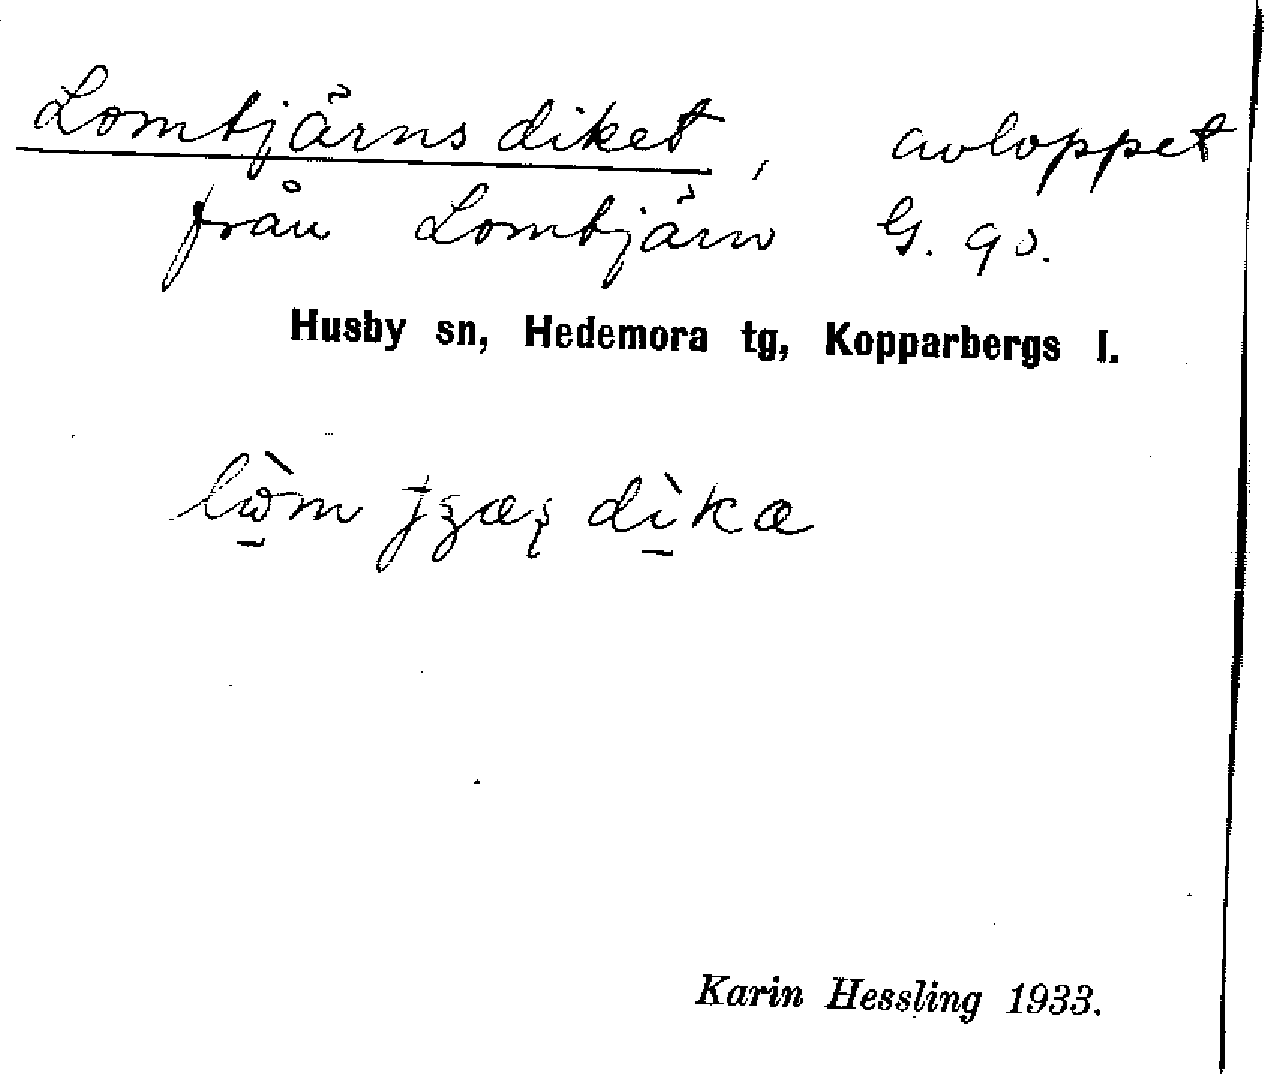 Lomtjärnsdiket, avloppet
från Lomtjärn G. go.
Husby sn, Hedemora tg, Kopparbergs l.
dìka
Karin Hessling 1933.